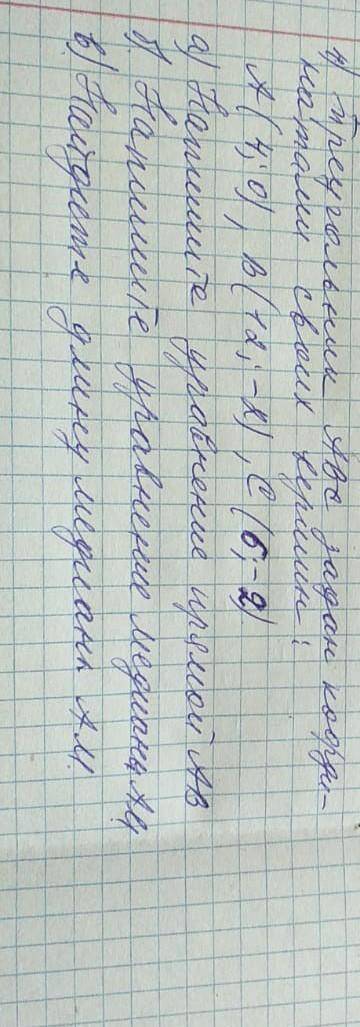 4) Треугольник ABC задан коорди-
натами своих вершин:
A(4; 0), B(12; -2), C(6; -2)
а) Напишите уравнение прямой AB
б) Напишите уравнение медианы AM
в) Найдите длину медианы AM.